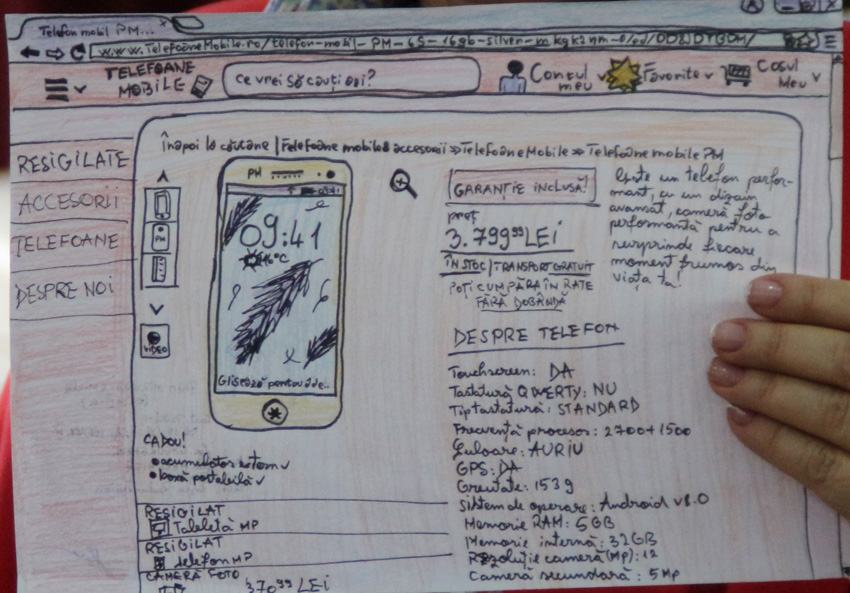 Telefon mobil PM...
www.TelefoaneMobile.ro/telefon-mobil-PM-6S-16gb-silver-
TELEFOANE
MOBILE
Ce vrei să cauți azi?
Contul
meu
Favorite
Coșul
Meu
RESIGILATE
ACCESORII
TELEFOANE
DESPRE NOI
Înapoi la căutare | Telefoane mobile & accesorii >> Telefoane Mobile >> Telefoane mobile PM
PM
VIDEO
PM
09:41
09:41
°C
Glisează pentru a de..
GARANȚIE INCLUSĂ!
preț
3.799⁹⁹ LEI
ÎN STOC/TRANSPORT GRATUIT
POȚI CUMPĂRA ÎN RATE
FĂRĂ DOBÂNDĂ
Este un telefon perfor-
mant, cu un dizain
avansat, cameră foto
performantă pentru a
surprinde fiecare
moment frumos din
viața ta!
DESPRE TELEFON
Touchscreen: DA
Tastatură QWERTY: NU
Tip tastatură: STANDARD
Frecvență procesor: 2700+1500
Culoare: AURIU
GPS: DA
Greutate: 153g
Sistem de operare: Android v8.0
Memorie RAM: 6GB
Memorie internă: 32GB
Rezoluție cameră (MP): 12
Cameră secundară: 5MP
CADOU!
• acumulator extern
• boxă portabilă
RESIGILAT
Tabletă MP
RESIGILAT
telefon MP
CAMERĂ FOTO
370⁹⁹ LEI